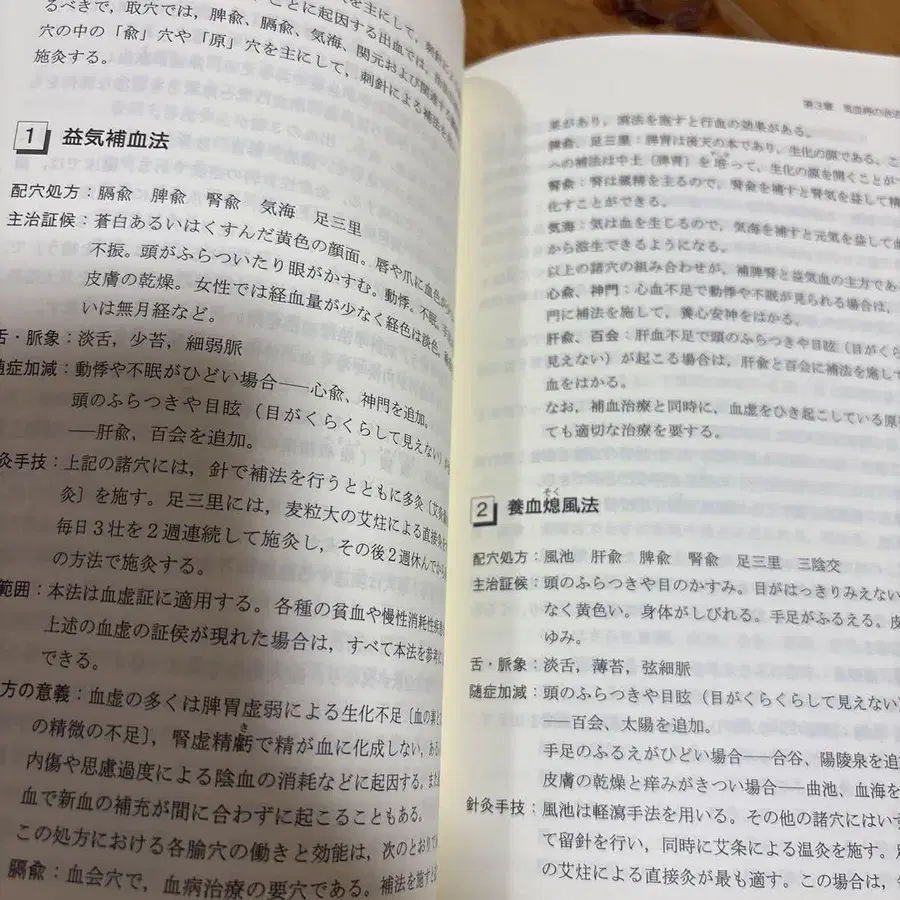 を主にして，刺針によ
ことに起因する出血では，
るべきで，取穴では，脾兪，膈兪，気海，関元および関連する
穴の中の「兪」穴や「原」穴を主にして，刺針による補法を
施灸する。
1 益気補血法
配穴処方：膈兪 脾兪 腎兪 気海 足三里
主治証候：蒼白あるいはくすんだ黄色の顔面。唇や爪に血色が
不振。頭がふらついたり眼がかすむ。動悸。不眠。手足
皮膚の乾燥。女性では経血量が少なく経色は淡色，
いは無月経など。
舌・脈象：淡舌，少苔，細弱脈
随症加減：動悸や不眠がひどい場合──心兪，神門を追加。
頭のふらつきや目眩（目がくらくらして見えない）
──肝兪，百会を追加。
灸手技：上記の諸穴には，針で補法を行うとともに多灸〔艾条
灸〕を施す。足三里には，麦粒大の艾炷による直接灸を
毎日3壮を2週連続して施灸し，その後2週休んでから
の方法で施灸する。
範囲：本法は血虚証に適用する。各種の貧血や慢性消耗性疾患
上述の血虚の証候が現れた場合は，すべて本法を参考に
できる。
方の意義：血虚の多くは脾胃虚弱による生化不足〔血の
の精微の不足〕，腎虚精虧で精が血に化成しない，ある
き
内傷や思慮過度による陰血の消耗などに起因する。また
血で新血の補充が間に合わずに起こることもある。
この処方における各腧穴の働きと効能は，次のとおり
膈兪：血会穴で，血病治療の要穴である。補法を施すと
第3章 気血病の治
果があり，瀉法を施すと行血の効果がある。
脾兪，足三里：脾胃は後天の本であり，生化の源である。こ
への補法は中土〔脾胃〕を培って，生化の源を開くことが
腎兪：腎は蔵精を主るので，腎兪を補すと腎気を益して精
化すことができる。
気海：気は血を生じるので，気海を補すと元気を益して血
から滋生できるようになる。
以上の諸穴の組み合わせが，補脾腎と益気血の主方であ
心兪，神門：心血不足で動悸や不眠が見られる場合は，
門に補法を施して，養心安神をはかる。
肝兪，百会：肝血不足で頭のふらつきや目眩（目がくら
見えない）が起こる場合は，肝兪と百会に補法を施して
血をはかる。
なお，補血治療と同時に，血虚をひき起こしている原
ても適切な治療を要する。
そく
2 養血熄風法
配穴処方：風池 肝兪 脾兪 腎兪 足三里 三陰交
主治証候：頭のふらつきや目のかすみ。目がはっきりみえない
なく黄色い。身体がしびれる。手足がふるえる。皮
ゆみ。
舌・脈象：淡舌，薄苔，弦細脈
随症加減：頭のふらつきや目眩（目がくらくらして見えない）
──百会，太陽を追加。
手足のふるえがひどい場合──合谷，陽陵泉を追
皮膚の乾燥と痒みがきつい場合──曲池，血海を
針灸手技：風池は軽瀉手法を用いる。その他の諸穴にはいず
て留針を行い，同時に艾条による温灸を施す。
の艾炷による直接灸が最も適す。この場合は，